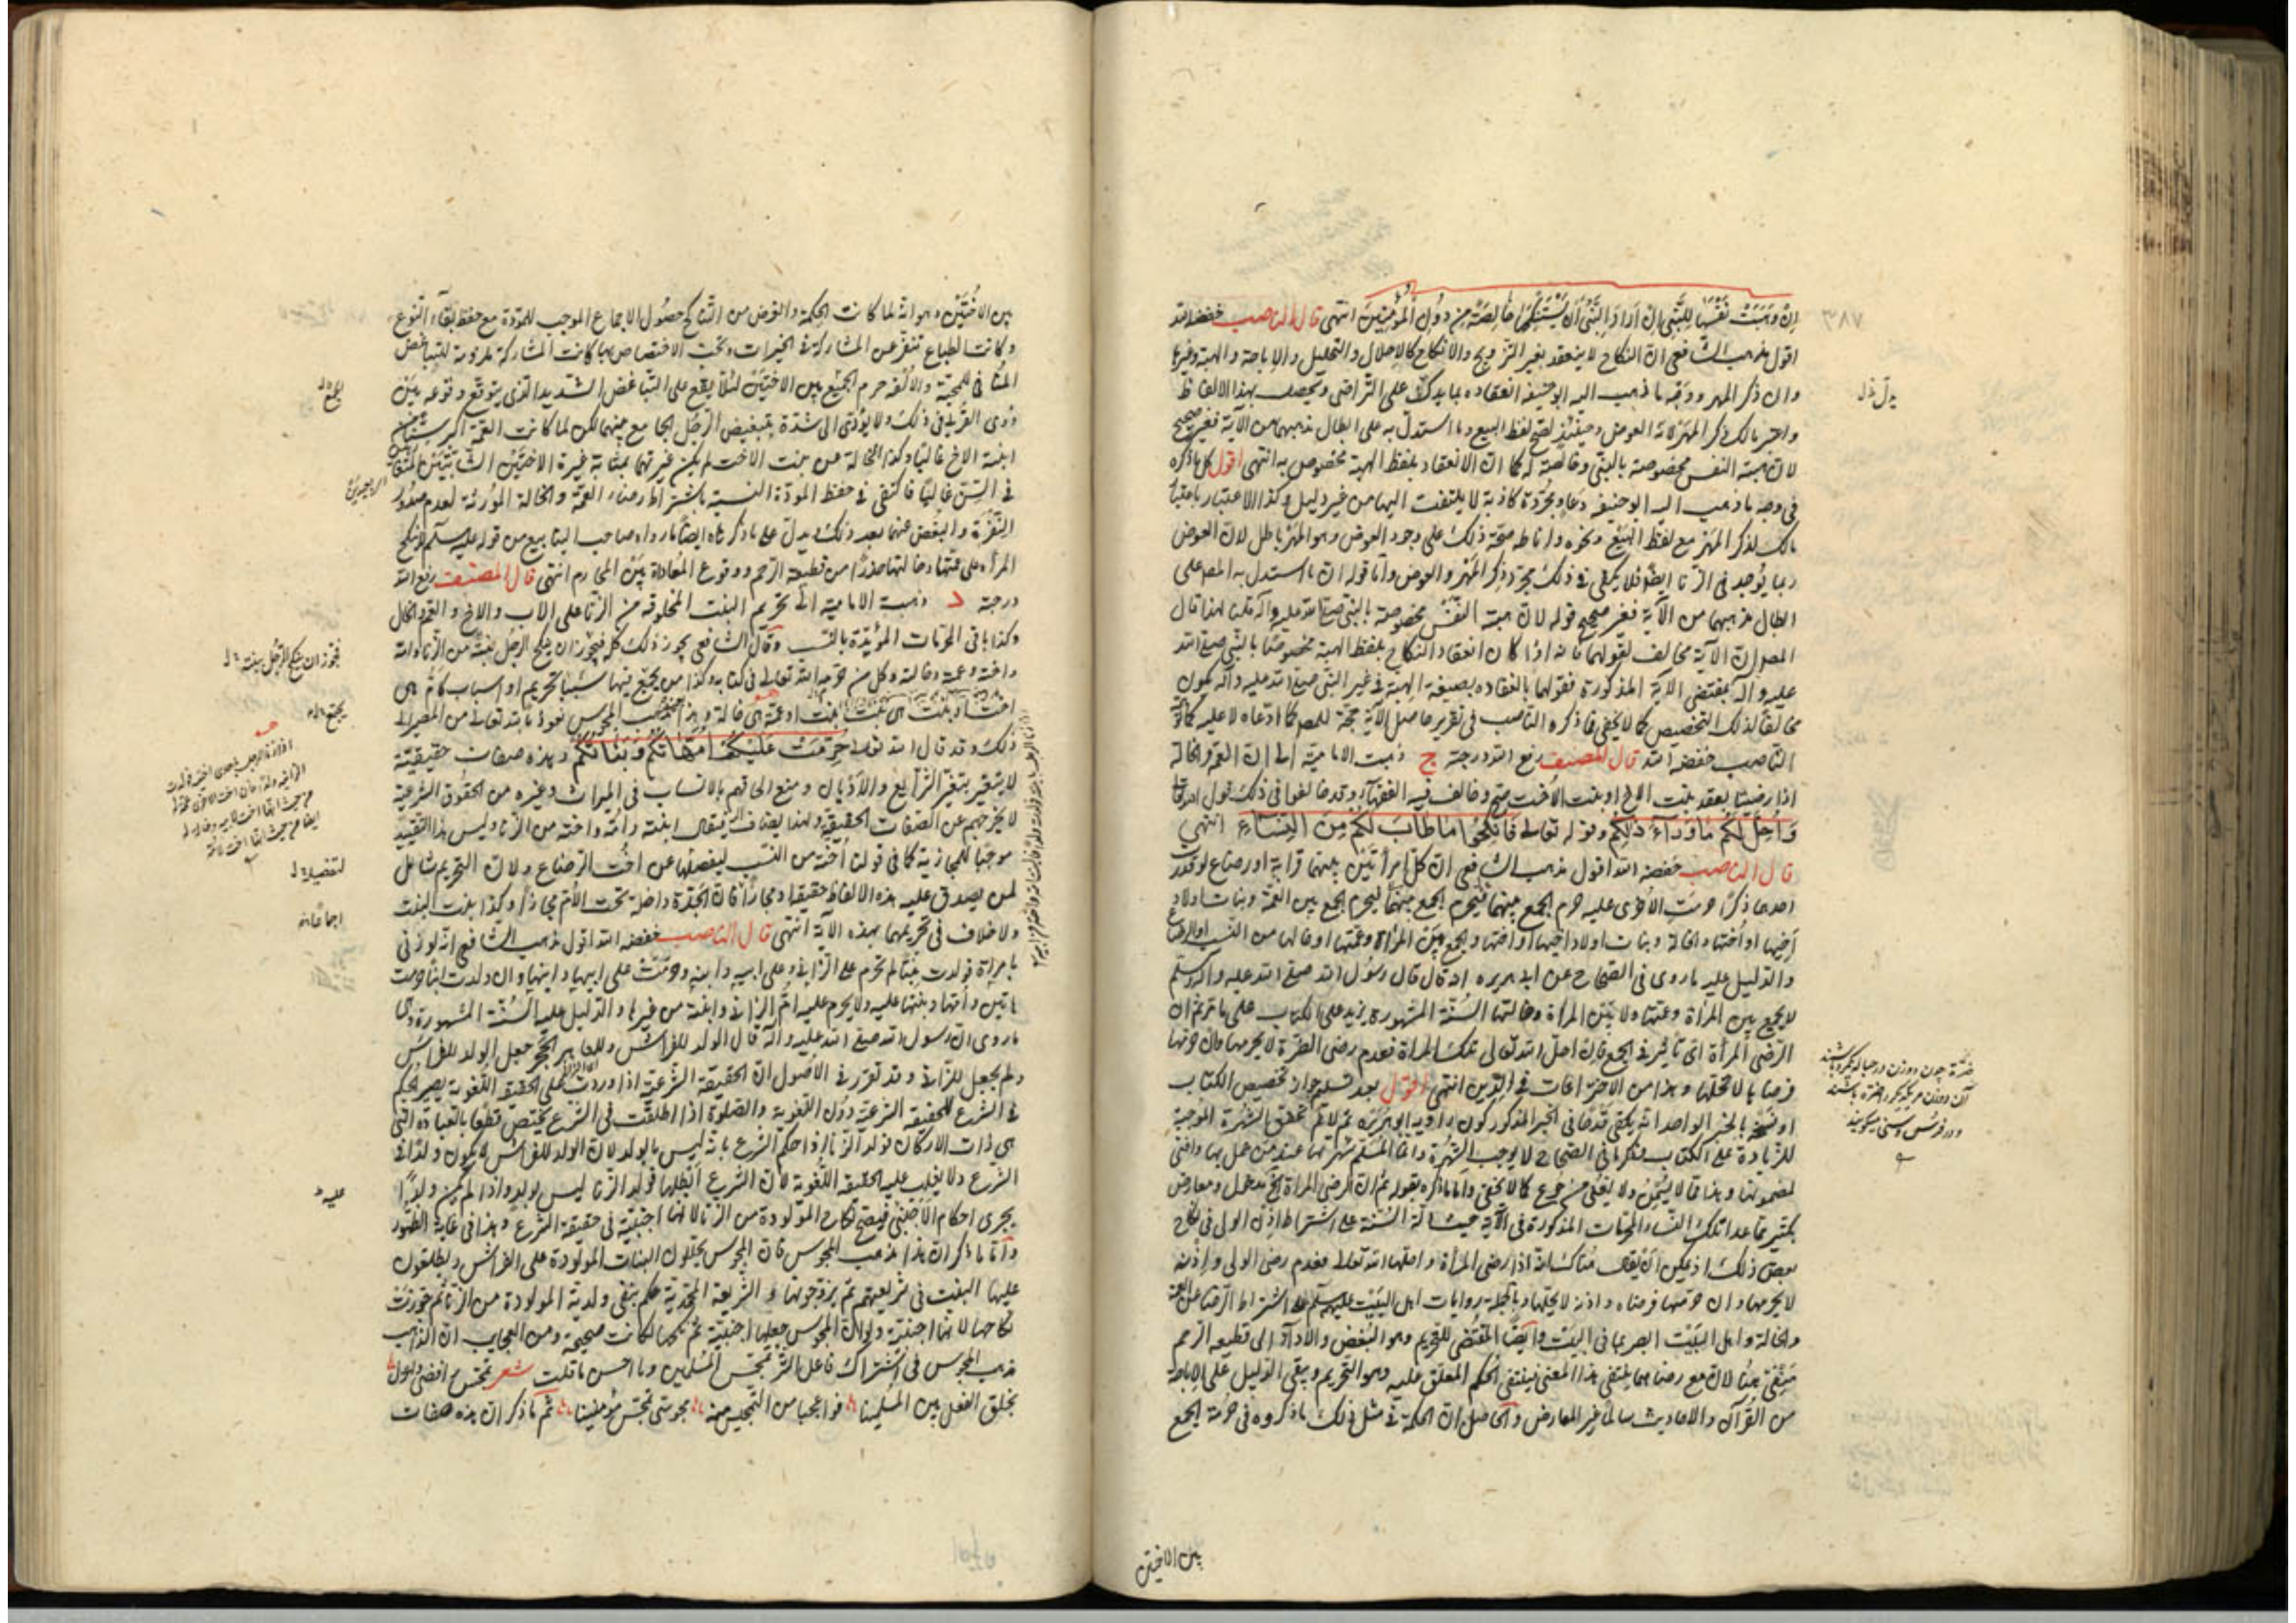 ان وهبت نفسها للنبي ان اراد النبي ان يستنكحها خالصة من دون المؤمنين انتهى قال الناصب خفضه الله
اقول مذهب الشافعي ان النكاح لا ينعقد بغير التزويج والانكاح كالاحلال والتحليل والاباحة والهبة وغيرها
وان ذكر المهر ووجه ما ذهب اليه ابو حنيفة انعقاده بما يدل على التراضي ويحصل بهذا الالفاظ
واعتبر مالك ذكر المهر لانه العوض وحينئذ يصح لفظ البيع وما استدل به على ابطال مذهبهما من الآية فغير صحيح
لان هبة النفس مخصوصة بالنبي وخالصة له كما ان الانعقاد بلفظ الهبة مخصوص به انتهى اقول كل ما ذكره
في وجه ما ذهب اليه ابو حنيفة دعاو مجردة كاذبة لا يلتفت اليها من غير دليل وكذا الاعتبار باعتبار
مالك لذكر المهر مع لفظ البيع ونحوه واناطة صحة ذلك على وجود العوض وهو المهر باطل لان العوض
ربما يوجد في الزنا ايضا فلا يكفي في ذلك مجرد ذكر المهر والعوض واما قوله ان ما استدل به المص على
ابطال مذهبهما من الآية فغير صحيح قوله لان هبة النفس مخصوصة بالنبي صلى الله عليه وآله قلنا لهذا قال
المص ان الآية مخالف لقولهما فانه اذا كان انعقاد النكاح بلفظ الهبة مخصوصا بالنبي صلى الله
عليه وآله بمقتضى الآية المذكورة فقولهما بانعقاده بصيغة الهبة في غير النبي صلى الله عليه وآله يكون
مخالفا لذلك التخصيص كما لا يخفى فما ذكره الناصب في تقرير حاصل الآية حجة للمص كما ادعاه لا عليه كما توهمه
الناصب خفضه الله قال المصنف رفع الله درجته ج ذهبت الامامية الى ان العمة والخالة
اذا رضيتا بعقد بنت الاخ او بنت الاخت صح وخالف فيه الفقهاء وقد خالفوا في ذلك قول الله تعالى
واحل لكم ما وراء ذلكم وقوله تعالى فانكحوا ما طاب لكم من النساء انتهى
قال الناصب خفضه الله اقول مذهب الشافعي ان كل امرأتين بينهما قرابة او رضاع لو قدر
احدهما ذكرا حرمت الاخرى عليه حرم الجمع بينهما فيحرم الجمع بين العمة وبنات اولاد
اخيها او اختها والخالة وبنات اولاد اخيها او اختها ويجمع بين المرأة وعمتها او خالها من النسب او الرضاع
والدليل عليه ما روى في الصحاح عن ابي هريرة انه قال قال رسول الله صلى الله عليه وآله وسلم
لا يجمع بين المرأة وعمتها ولا بين المرأة وخالتها السنة المشهورة يزيد على الكتاب على ما تزعم ان
لرضى المرأة اي تأثير في الجمع فان احل الله تعالى تلك المرأة فعدم رضى الضرة لا يحرمها وان حرمها
فرضاها لا تحللها وهذا من الاختراعات في الدين انتهى اقول بعد تسليم جواز تخصيص الكتاب
او نسخه بالخبر الواحد انه يكفي قدحا في الخبر المذكور كون راويه ابو هريرة ثم لا نم تحقق الشهرة الموجبة
للزيادة على الكتاب فذكرها في الصحاح لا يوجب الشهرة وانما المسلم شهرتها عند من عمل بها وافتى
بمضمونها وهذا مما لا يسمن ولا يغني من جوع كما لا يخفى واما ما ذكره بقوله ثم ان لرضى المرأة الخ فمدخول ومعارض
بكثير مما عدا تلك النساء المحرمات المذكورة في الآية حيث دلت السنة على اشتراط اذن الولي في نكاح
بعض ذلك اذ يمكن ان يقال هناك انه اذا رضي المرأة واحلها الله تعالى فعدم رضى الولي واذنه
لا يحرمها وان حرمها فرضاه واذنه لا يحللها وبالجملة روايات اهل البيت عليهم السلام على اشتراط الرضا من العمة
والخالة واهل البيت ابصر بما في البيت وايضا المقتضي للتحريم وهو البغض والاداء الى قطيعة الرحم
منتفى هنا لان مع رضاهما ينتفى هذا المعنى فينتفى الحكم المعلق عليه وهو التحريم ويبقى الدليل على الاباحة
من القرآن والاحاديث سالما غير المعارض والحاصل ان الحكمة في مثل ذلك ما ذكروه في حرمة الجمع
بين الاختين
٣٨٧
يدل خ ل
ضرة چون دو زن در حباله يكمرد باشند
آن دو زن مر يكديگر را ضره باشند
و در فرس وسنى ميگويند
بين الاختين وهو انه لما كانت الحكمة والغرض من النكاح حصول الاجتماع الموجب للمودة مع حفظ بقاء النوع
وكانت الطباع تنفر عن المشاركة في الخيرات وتحب الاختصاص بها كانت المشاركة مورثة للتباغض
المنافي للمحبة والالفة حرم الجمع بين الاختين لئلا يقع على التباغض الشديد الذي يتوقع وقوعه بين
ذوي القربى في ذلك ولا يؤدي الى شدة تبغيض الرجل الجامع بينهما لكن لما كانت العمة اكبر سنا من
ابنة الاخ غالبا وكذا الخالة من بنت الاخت لم يكن غيرتهما بمثابة غيرة الاختين الشابتين
في السن غالبا فاكتفى في حفظ المودة النسبية باشتراط رضاء العمة والخالة المورثة لعدم صدور
النفرة والبغض عنهما بعد ذلك ويدل على ما ذكرناه ايضا ما رواه صاحب الينابيع من قوله عليه السلم لا تنكح
المرأة على عمتها وخالتها حذرا من قطيعة الرحم ووقوع المعاداة بين المحارم انتهى قال المصنف رفع الله
درجته د ذهبت الامامية الى تحريم البنت المخلوقة من الزنا على الاب والاخ والعم والخال
وكذا باقي المحرمات المؤبدة بالنسب وقال الشافعي يجوز ذلك كله فيجوز ان ينكح الرجل بنته من الزنا وامه
واخته وعمته وخالته وكل من حرمه الله تعالى في كتابه وكذا من يجتمع فيها سببا تحريم او اسباب كام هي
اخت او بنت هي بنت بنت او عمة هي خالة وهذا مذهب المجوس نعوذ بالله تعالى من المصير الى
ذلك وقد قال الله تعالى حرمت عليكم امهاتكم وبناتكم وهذه صفات حقيقية
لا يتغير بتغير الشرايع والاديان ومنع الحاقهم بالانساب في الميراث وغيره من الحقوق الشرعية
لا يخرجهم عن الصفات الحقيقية ولهذا يضاف اليه فيقال ابنته وامه واخته من الزنا وليس هذا التقييد
موجبا للمجازية كما في قولنا اخته من النسب ليفصلها عن اخت الرضاع ولان التحريم شامل
لمن يصدق عليه هذه الالفاظ حقيقة ومجازا فان الجدة داخلة تحت الام مجازا وكذا بنت البنت
ولا خلاف في تحريمهما بهذه الآية انتهى قال الناصب خفضه الله اقول مذهب الشافعي انه لو زنى
بامرأة فولدت بنتا لم تحرم على الزاني وعلى ابيه وابنه وحرمت على ابيها وابنها وان ولدت ابنا حرمت
هي وامها وبنتها عليه ولا يحرم عليه ام الزاني وابنته من غيرها والدليل عليه السنة المشهورة وهي
ما روي ان رسول الله صلى الله عليه وآله قال الولد للفراش وللعاهر الحجر جعل الولد للفراش
ولم يجعل للزاني وقد تقرر في الاصول ان الحقيقة الشرعية اذا وردت على الحقيقة اللغوية يصير الحكم
في الشرع للحقيقة الشرعية دون اللغوية والصلوة اذا اطلقت في الشرع يختص قطعا بالعبادة التي
هي ذات الاركان فولد الزنا اذا حكم الشرع بانه ليس بالولد لان الولد للفراش لا يكون ولدا في
الشرع ولا يغلب عليه الحقيقة اللغوية لان الشرع ابطلها فولد الزنا ليس بولد واذا لم يكن ولدا
يجري احكام الاجنبي فيصح نكاح المولودة من الزنا لانها اجنبية في حقيقة الشرع وهذا في غاية الظهور
واما ما ذكر ان هذا مذهب المجوس فان المجوس يحللون البنات المولودة على الفراش ويطلقون
عليها البنت في شريعتهم ثم يزوجونها والشريعة المحمدية حكم بنفي ولدية المولودة من الزنا ثم جوزت
نكاحها لانها اجنبية ولو ان المجوس جعلها اجنبية ثم نكحها لكانت صحيحة ومن العجايب ان الذاهب
مذهب المجوس في اشتراك فاعل الشر تمجس المسلمين وما احسن ما قلت شعر تمجس رافضي
بخلق الفعل بين المسلمينا فوا عجبا من التمجيس منه مجوسي تمجس مؤمنينا ثم ما ذكر ان هذه صفات
فيجوز ان ينكح الرجل بنته خ ل
يجتمع
اجماعا
عليه